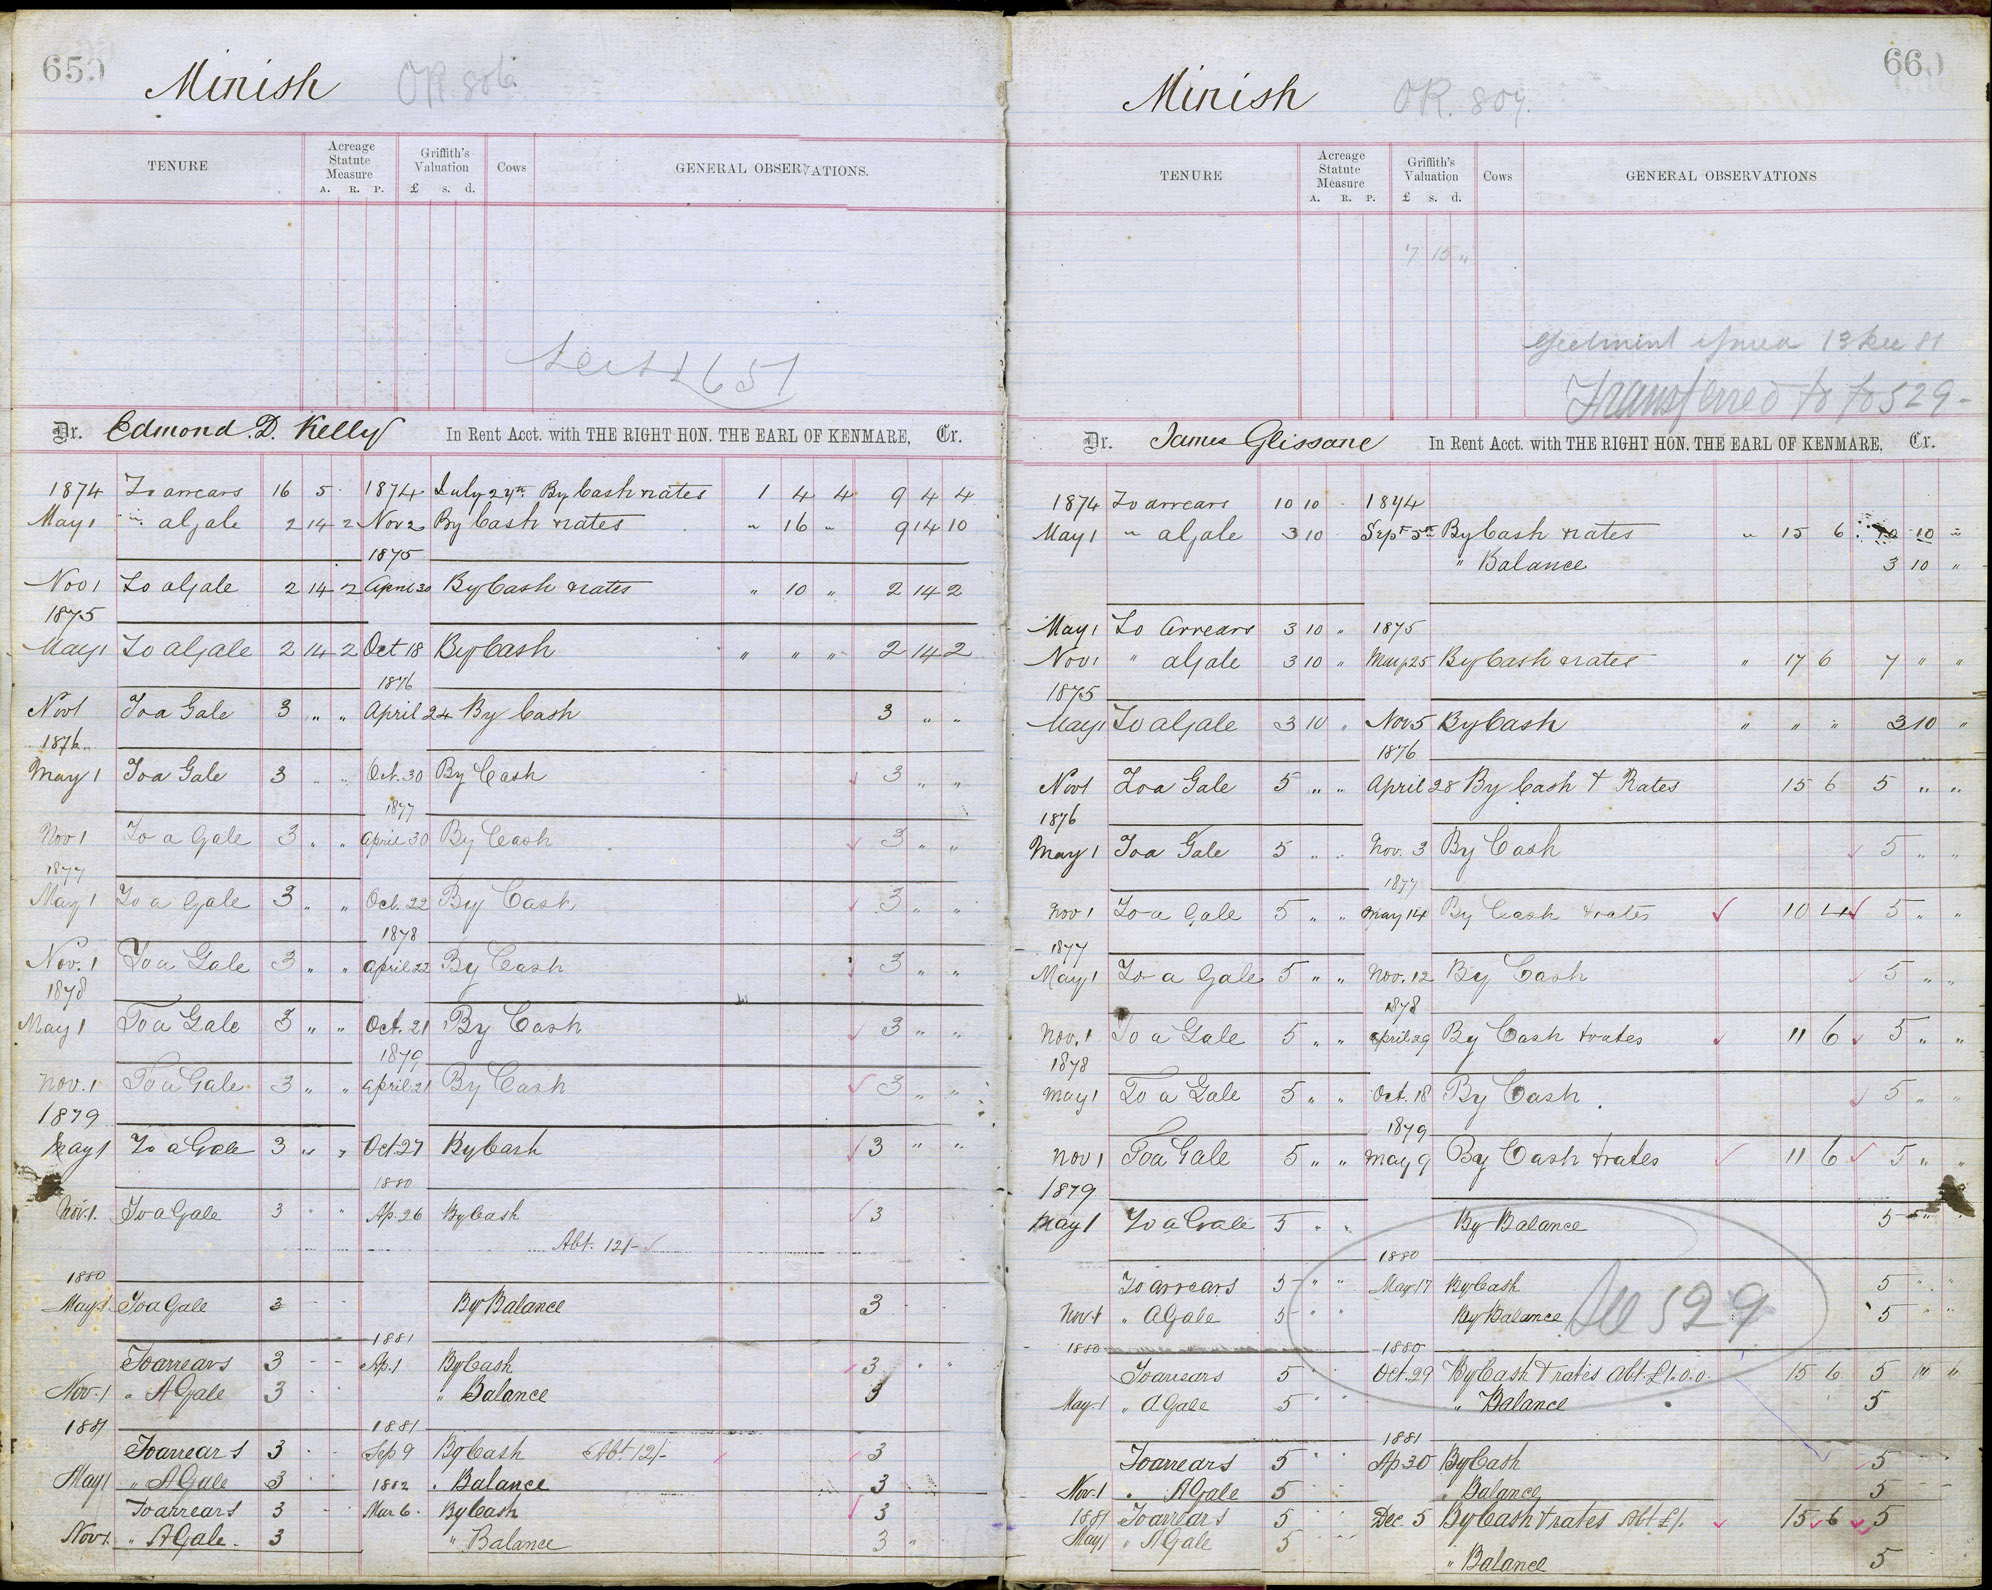 659
Minish OR. 806
TENURE
Acreage Statute Measure
A. R. P.
Griffith's Valuation
£ s. d.
Cows
GENERAL OBSERVATIONS.
651
Dr. Edmond. D. Kelly In Rent Acct. with THE RIGHT HON. THE EARL OF KENMARE, Cr.
1874 To arrears 16 5 1874 July 27th By Cash rates 1 4 4 9 4 4
May 1 " a Gale 2 14 2 Nov 2 By Cash rates " 16 " 9 14 10
1875
Nov 1 To a Gale 2 14 2 April 30 By Cash & rates " 10 " 2 14 2
1875
May 1 To a Gale 2 14 2 Oct 18 By Cash " " " 2 14 2
1876
Nov 1 To a Gale 3 " " April 24 By Cash 3 " "
1876
May 1 To a Gale 3 " " Oct. 30 By Cash 3 " "
1877
Nov 1 To a Gale 3 " " April 30 By Cash 3 " "
1877
May 1 To a Gale 3 " " Oct. 22 By Cash 3 " "
1878
Nov. 1 To a Gale 3 " " April 22 By Cash 3 " "
1878
May 1 To a Gale 3 " " Oct. 21 By Cash 3 " "
1879
Nov. 1 To a Gale 3 " " April 21 By Cash 3 " "
1879
May 1 To a Gale 3 " " Oct 27 By Cash 3 " "
1880
Nov. 1. To a Gale 3 " " Ap. 26 By Cash 3
Abt. 12/-
1880
May 1 To a Gale 3 - - By Balance 3
1881
To arrears 3 - - Ap. 1 By Cash 3 " "
Nov. 1 " A Gale 3 " Balance 3
1881 1881
To arrears 3 Sep 9 By Cash Abt 12/- 3
May 1 " A Gale 3 1882 " Balance 3
To arrears 3 Mar 6. By Cash 3
Nov 1. " A Gale. 3 " Balance 3 "
660
Minish OR. 807.
TENURE
Acreage Statute Measure
A. R. P.
Griffith's Valuation
£ s. d.
Cows
GENERAL OBSERVATIONS
7 15 "
Ejectment issued 13 Dec 81
Transferred to fo 529 -
Dr. James Glissane In Rent Acct. with THE RIGHT HON. THE EARL OF KENMARE, Cr.
1874 To arrears 10 10 1874
May 1 " a Gale 3 10 Sept 5th By Cash & rates " 15 6 10 10 "
" Balance 3 10 "
May 1 To Arrears 3 10 " 1875
Nov 1 " a Gale 3 10 " May 25 By Cash & rates " 17 6 7 " "
1875
May 1 To a Gale 3 10 " Nov 5 By Cash " " " 3 10 "
1876
Nov 1 To a Gale 5 " " April 28 By Cash & Rates 15 6 5 " "
1876
May 1 To a Gale 5 " " Nov. 3 By Cash 5 " "
1877
Nov 1 To a Gale 5 " " May 14 By Cash & rates 10 4 5 " "
1877
May 1 To a Gale 5 " " Nov. 12 By Cash 5 " "
1878
Nov. 1 To a Gale 5 " " April 29 By Cash & rates 11 6 5 " "
1878
May 1 To a Gale 5 " " Oct. 18 By Cash 5 " "
1879
Nov 1 To a Gale 5 " " May 9 By Cash & rates 11 6 5 " "
1879
May 1 To a Gale 5 " " By Balance 5 " "
1880
To arrears 5 " " May 17 By Cash 5 " "
Nov 1 " A Gale 5 " " By Balance 5 " "
See 529
1880 1880
To arrears 5 " Oct. 29 By Cash & rates Abt. £1.0.0. 15 6 5 " "
May 1 " A Gale 5 " " Balance 5
1881
To arrears 5 " " Ap 30 By Cash 5
Nov. 1 " A Gale 5 " Balance 5
1881 To arrears 5 Dec. 5 By Cash & rates Abt £1. 15 6 5
May 1 " A Gale 5
" Balance 5